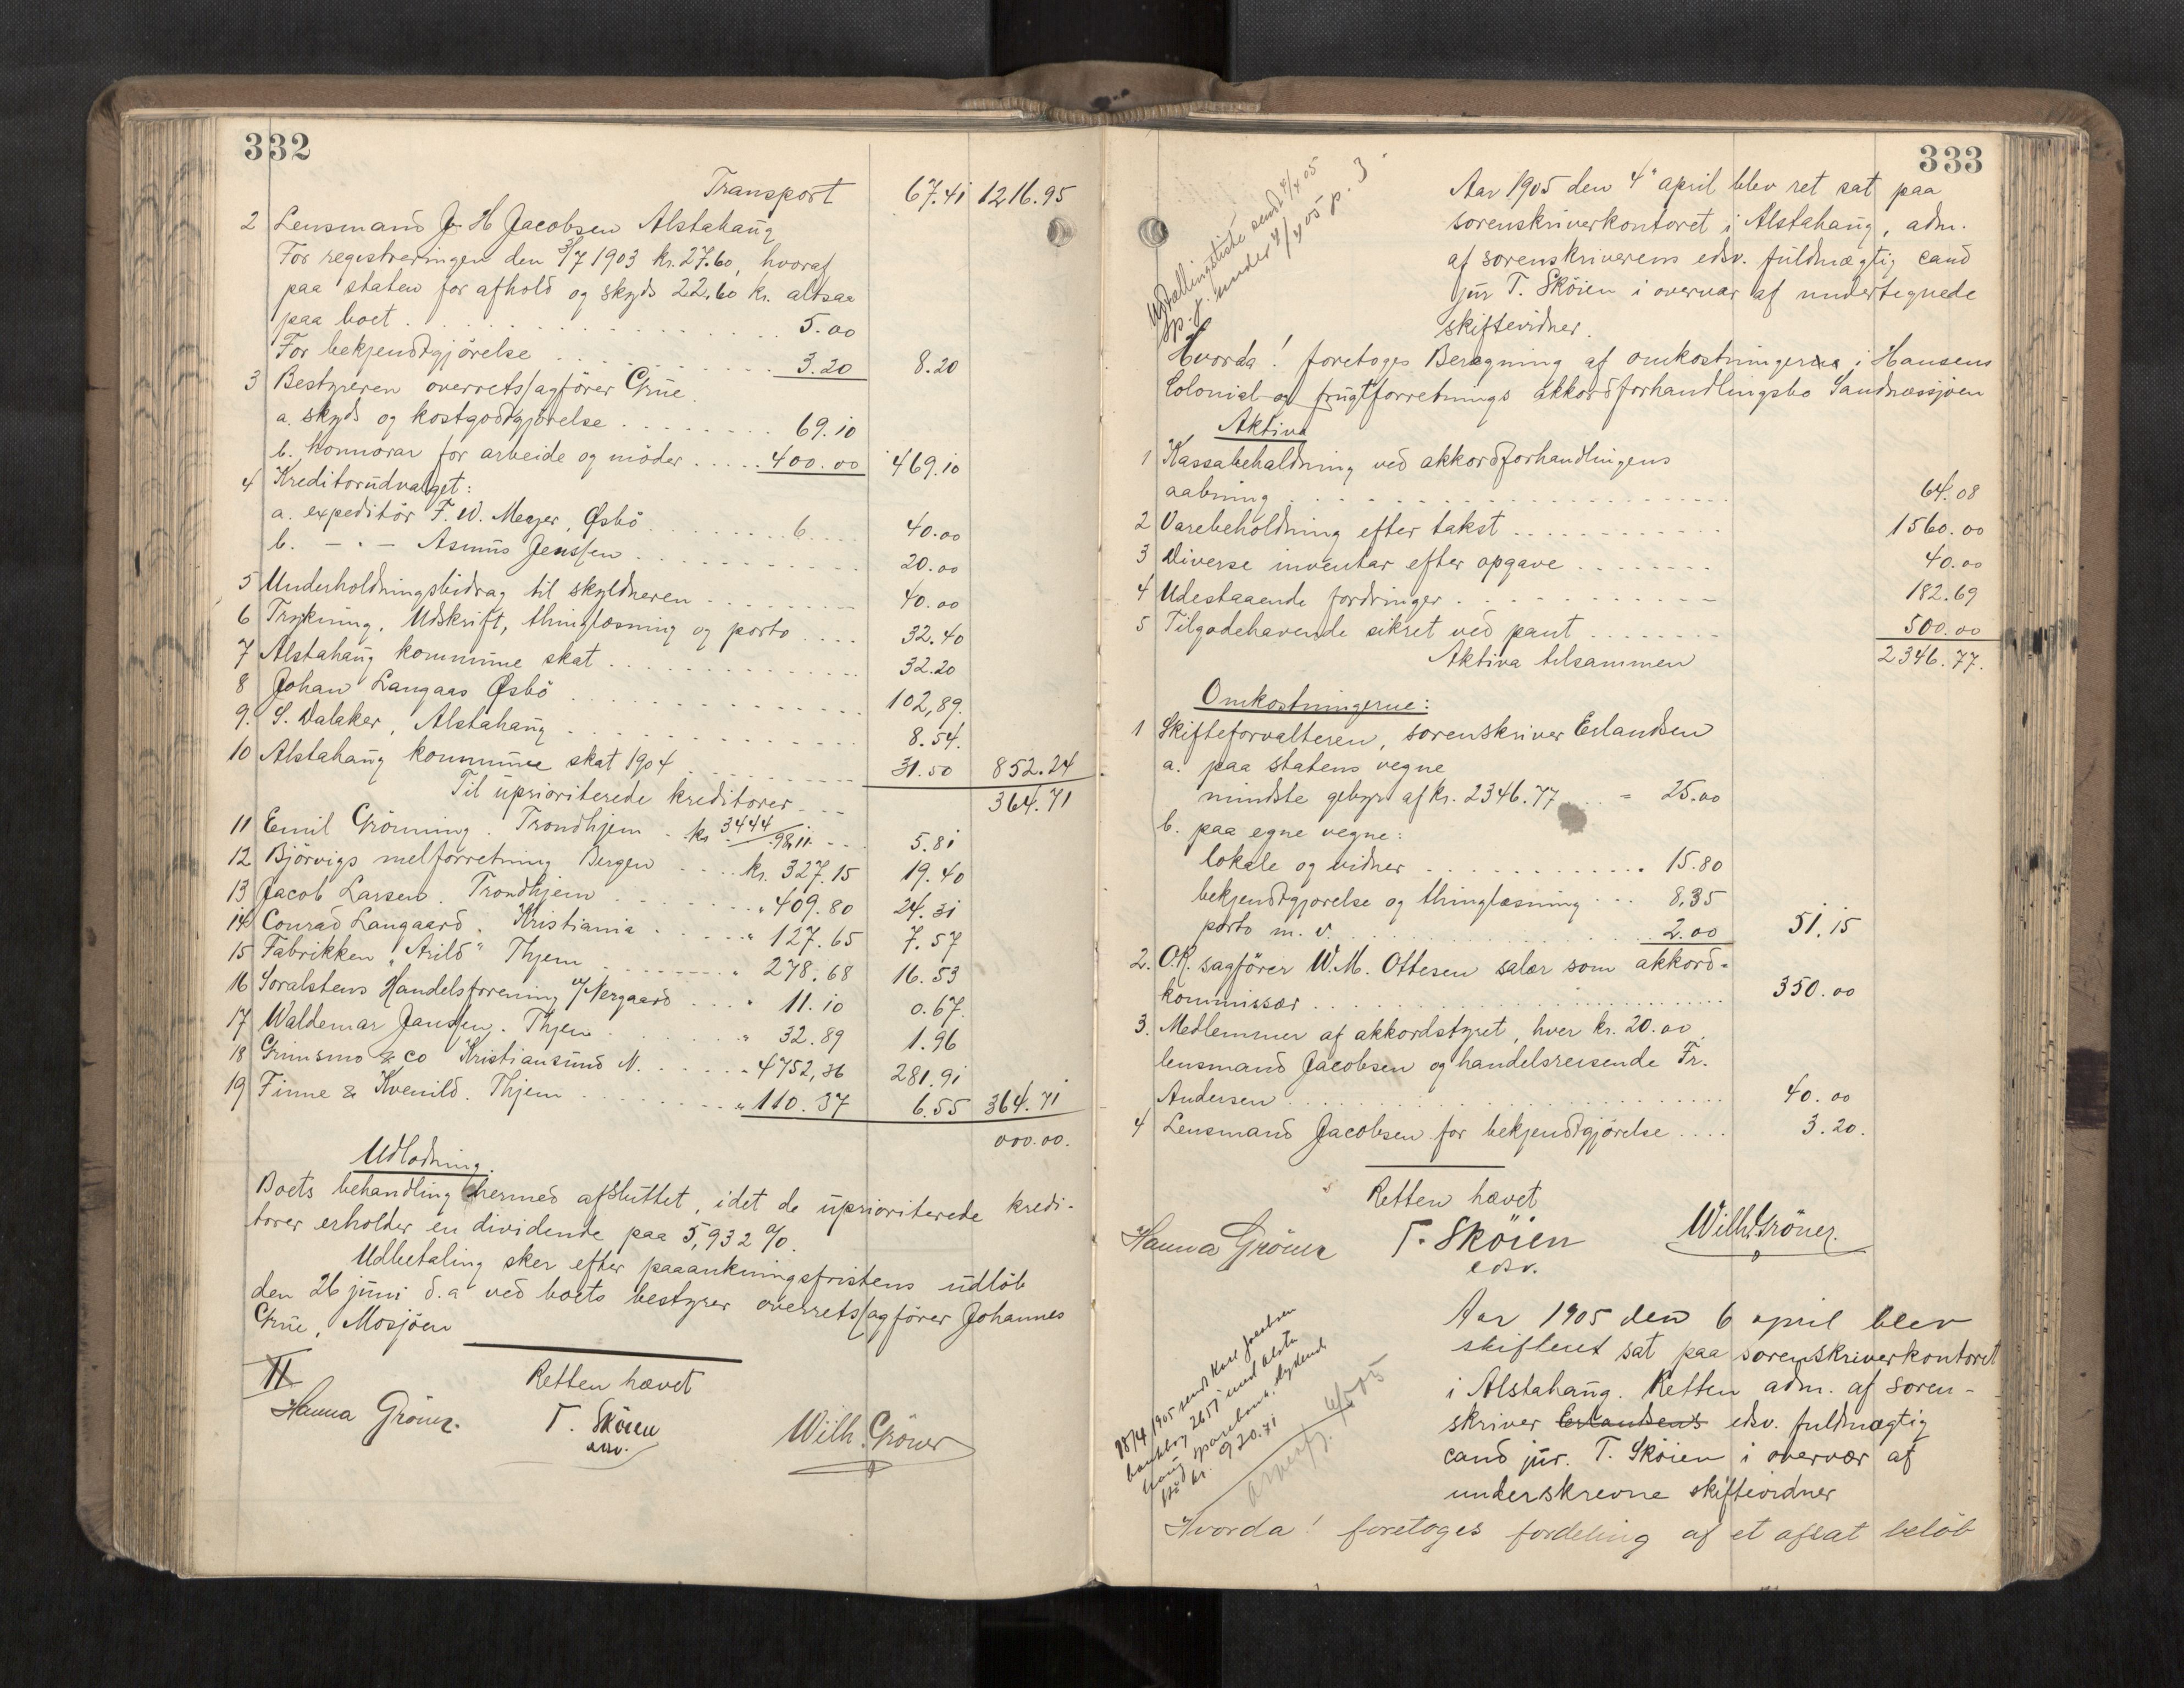 332
Transport 67.41 1216.95
2 Lensmand J. H Jacobsen Alstahaug
For registreringen den 3/7 1903 kr. 27.60, hvoraf
paa staten for afhold og skyds 22.60 kr. altsaa
paa boet 5.00
For bekjendtgjörelse 3.20 8.20
3 Bestyreren overretssagförer Grue
a. skyds og kostgodtgjörelse 69.10
b. honnorar for arbeide og möder 400.00 469.10
4 Kreditorudvalget:
a. expeditör F. W. Meyer, Øsbö 40.00
b. - " - Asmus Jenssen 20.00
5 Underholdningsbidrag til skyldneren 40.00
6 Trykning, Udskrift, thinglæsning og porto 32.40
7 Alstahaug kommune skat 32.20
8 Johan Langaas Øsbö 102,89.
9. S. Dalaker, Alstahaug 8.54.
10 Alstahaug kommune skat 1904 31.50 852.24
Til uprioriterede kreditorer 364.71
11 Emil Grönning. Trondhjem kr 3444/98.11 5.81
12 Björvigs melforretning Bergen kr. 327.15 19.40
13 Jacob Larsen. Trondhjem " 409.80 24.31
14 Conrad Langaard. Kristiania " 127.65 7.57
15 Fabrikken "Arild" Thjem " 278.68 16.53
16 Söralstens Handelsforening v/Nergaard " 11.10 0.67.
17 Waldemar Janssen. Thjem " 32.89 1.96
18 Grimsmo & co Kristiansund N. " 4752,36 281.91
19 Finne & Kvenild. Thjem " 110.37 6.55 364.71
000.00.
Udlodning.
Boets behandling hermed afsluttet, idet de uprioriterede kredi-
torer erholder en dividende paa 5,932 %.
Udbetaling sker efter paaankningsfristens udlöb
den 26 juni d.a ved boets bestyrer overretssagförer Johannes
Grue, Mosjöen
Retten hævet
Hanna Gröner. T. Sköien Wilh. Gröner
edsv.
333
Udstellingsliste sendt 4/4 05
Aar 1905 den 4' april blev ret sat paa
sorenskriverkontoret i Alstahaug, adm.
af sorenskriverens edsv. fuldmægtig cand
jur T. Sköien i overvær af undertegnede
skiftevidner.
Hvorda! foretoges Beregning af omkostningerne i Hansens
Colonial og frugtforretnings akkordforhandlingsbo Sandnessjöen
Aktiva
1 Kassabehaldning ved akkordforhandlingens
aabning 64.08
2 Varebeholdning efter takst 1560.00
3 Diverse inventar efter opgave 40.00
4 Udestaaende fordringer 182.69
5 Tilgodehavende sikret ved pant 500.00
Aktiva tilsammen 2346.77.
Omkostningerne:
1 Skifteforvalteren, sorenskriver Erlandsen
a. paa statens vegne
mindste gebyr af kr. 2346.77 = 25.00
b. paa egne vegne:
lokale og vidner 15.80
bekjendtgjorelse og thinglæsning 8,35
porto m. v. 2.00 51.15
2. O.R. sagförer W. M. Ottesen salær som akkord-
kommissær 350.00
3. Medlemmer af akkordstyret, hver kr. 20.00.
lensmand Jacobsen og handelsreisende Fr.
Andersen 40.00
4 Lensmand Jacobsen for bekjendtgjörelse 3.20.
Retten hævet
Hanna Gröner T. Sköien Wilh. Gröner.
edsv.
18/4 1905 sendt Karl Jacobsen
bankbog 2657 med Alsta
haug sparebank, lydende
kr. 920.71
6/5 05
Aar 1905 den 6 april blev
skifteret sat paa sorenskriverkontoret
i Alstahaug. Retten adm. af soren-
skriver Erlandsens edsv. fuldmægtig
cand jur. T. Sköien i overvær af
underskrevne skiftevidner
Hvorda! foretoges fordeling af et afsat belöb